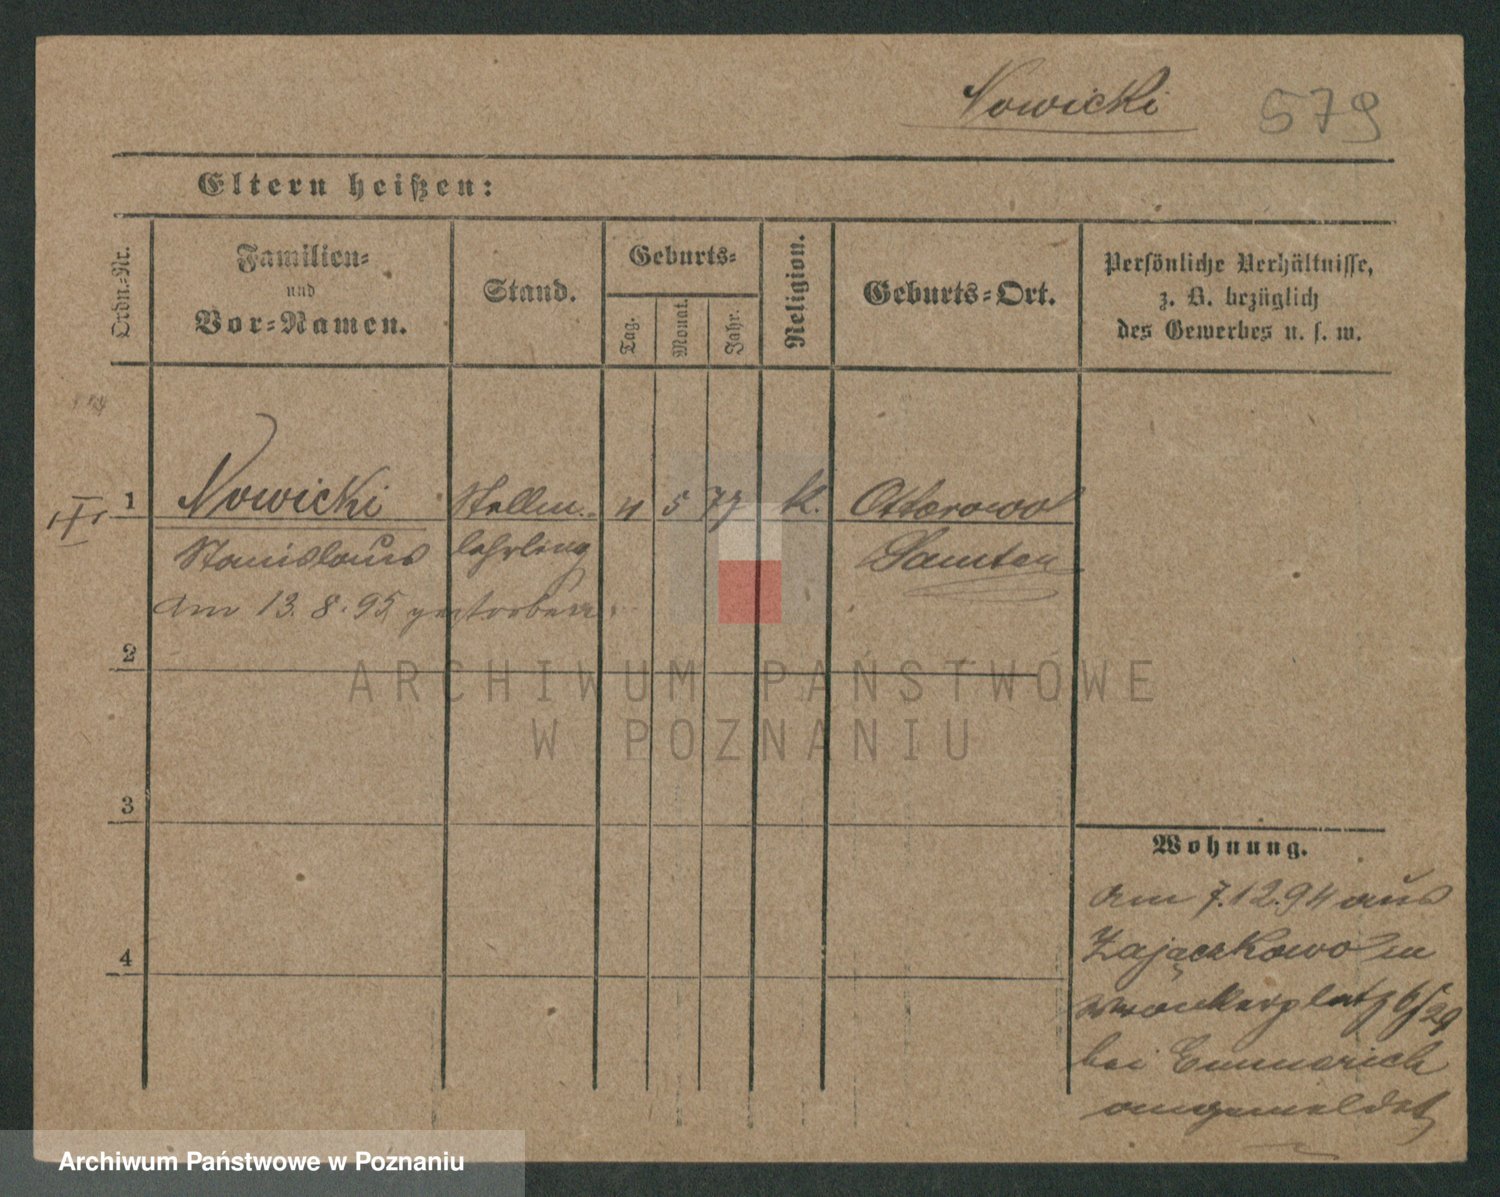 Nowicki 579
Eltern heißen:
Ordn.-Nr.
Familien-
und
Vor-Namen.
Stand.
Geburts-
Tag.
Monat.
Jahr.
Religion.
Geburts-Ort.
Persönliche Verhältnisse,
z. B. bezüglich
des Gewerbes u. s. w.
III 1 Nowicki Stellm.- 4 5 77 k. Otterowo
Stanislaus lehrling Samter
Am 13. 8. 95 gestorben.
2
ARCHIWUM PAŃSTWOWE
W POZNANIU
3
Wohnung.
Am 7.12.94 aus
4 Zajączkowo in
Wronkerplatz 6/29
bei Emmerich
angemeldet
Archiwum Państwowe w Poznaniu